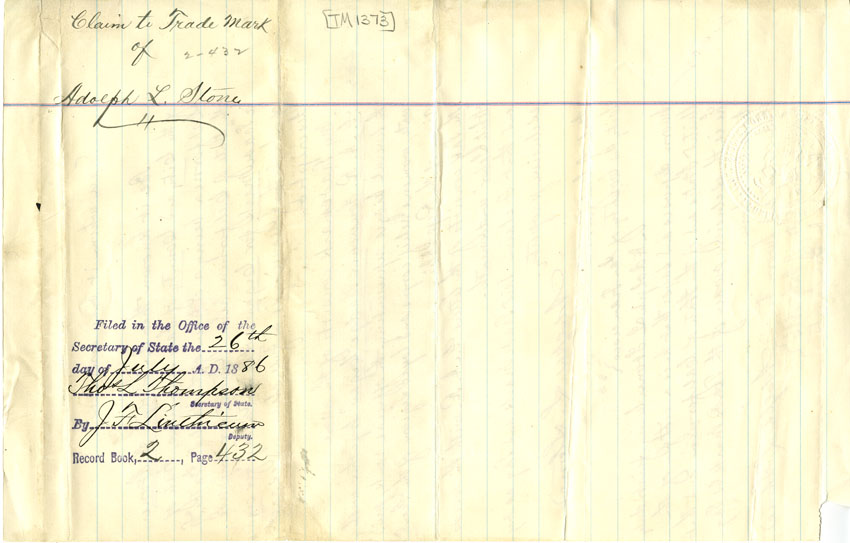 Claim to Trade Mark
of 2-432
Adolph L. Stone
[TM 1373]
Filed in the Office of the
Secretary of State the 26th
day of July A. D. 1886
Thos L Thompson
Secretary of State.
By J. F. Linthicum
Deputy.
Record Book, 2, Page 432